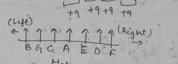 +9 +9 +9 +9
(Left) (Right)
B G C A E D F